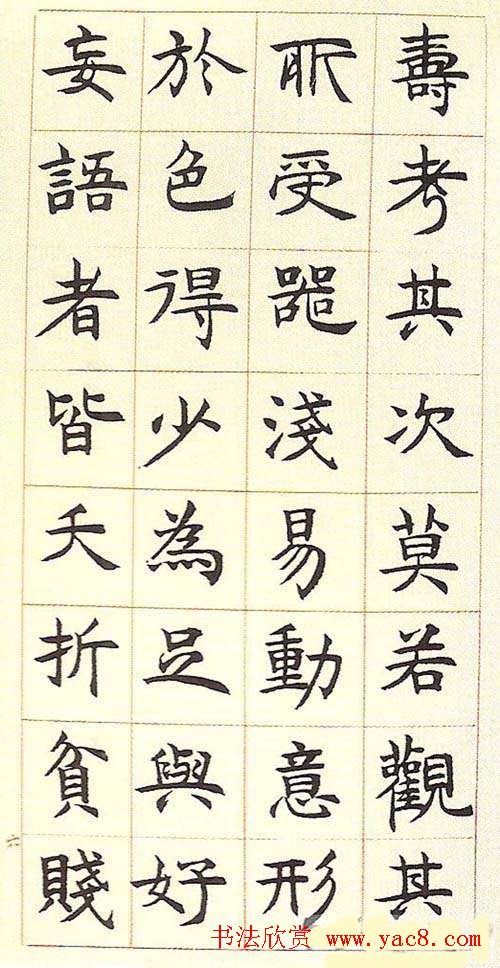 壽考其次莫若觀其
所受器淺易動意形
於色得少為足與好
妄語者皆夭折貧賤
六
书法欣赏 www.yac8.com